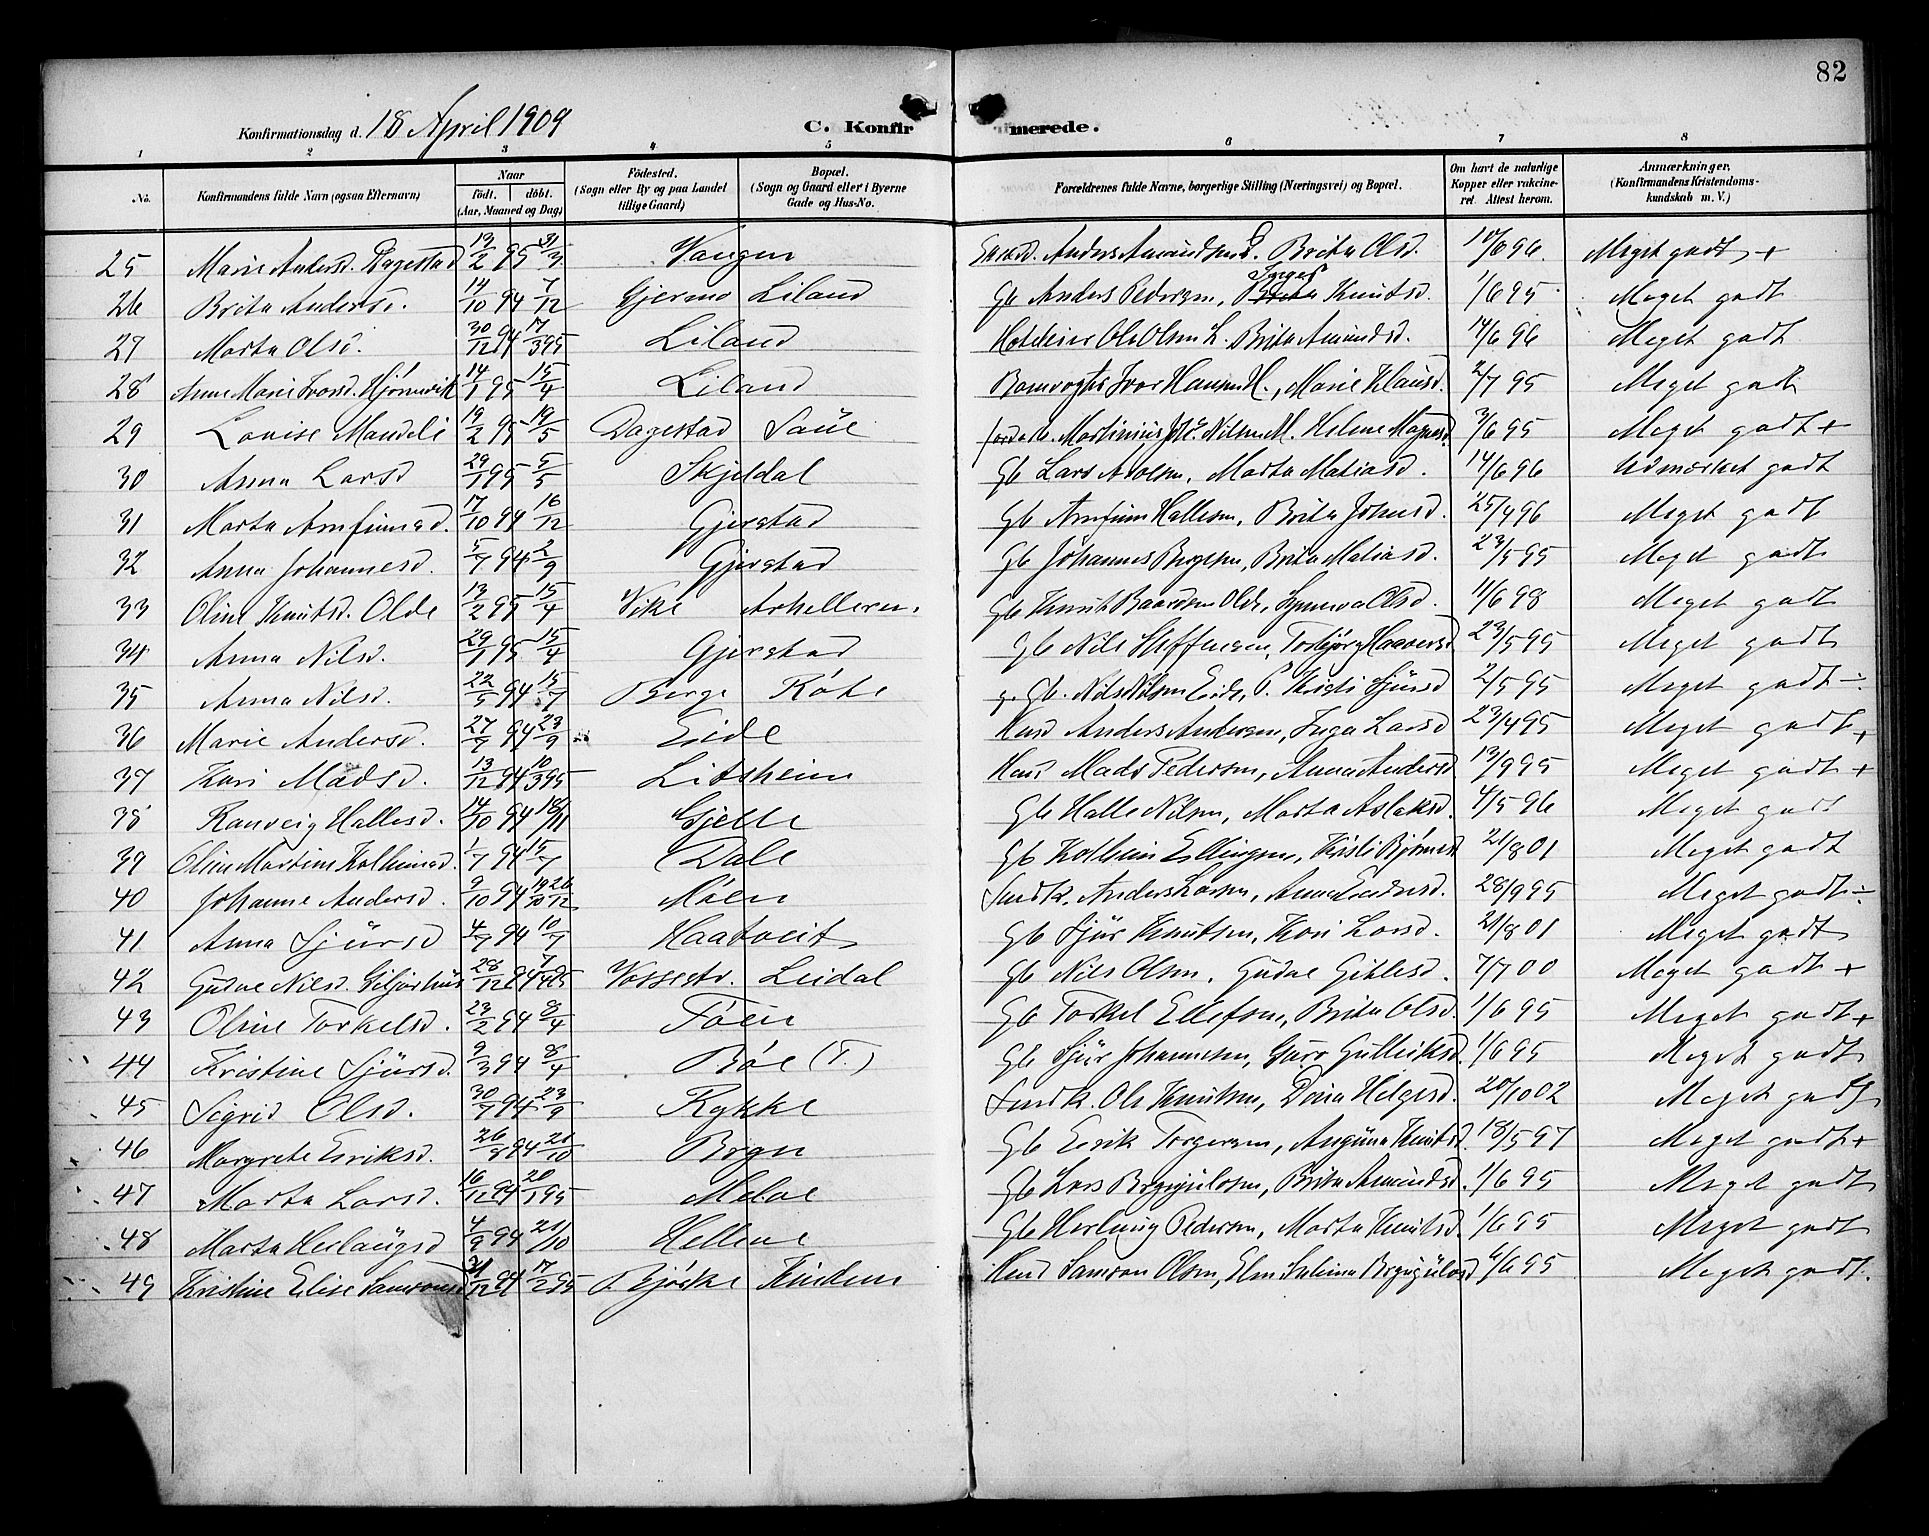 82
Konfirmationsdag d. 18 April 1909 C. Konfirmerede.
1 2 3 4 5 6 7 8
No. Konfirmandens fulde Navn (ogsaa Efternavn) Naar født. døbt. (Aar, Maaned og Dag) Fødested. (Sogn eller By og paa Landet tillige Gaard) Bopæl. (Sogn og Gaard eller i Byerne Gade og Hus-No. Forældrenes fulde Navne, borgerlige Stilling (Næringsvei) og Bopæl. Om havt de naturlige Kopper eller vakcineret. Attest herom. Anmærkninger, (Konfirmandens Kristendomskundskab m. V.)
25 Marie Andersd. Dagestad 13/2 95 31/3 Vangen Anders Amundsen D. Brita Olsd. 14/6 96 Meget godt +
26 Brita Andersd. 14/10 94 7/12 Gjermo Liland Gb Anders Pedersen, Knutsd. 1/6 95 Meget godt
27 Marta Olsd. 30/12 94 17/3 95 Liland Ole Olsen L. Brita Amundsd. 14/6 96 Meget godt
28 Anna Marie Ivarsd. Hjørnevik 14/1 95 15/4 Liland Banevogter Ivar Hansen H., Marie Klausd. 2/7 95 Meget godt
29 Lovise Mandeli 19/2 95 19/5 Dagestad Saue Martinius Joh. Nilsen M. Helene Magnesd. 3/6 95 Meget godt +
30 Anna Larsd 29/1 95 5/5 Skjeldal Gb Lars Marta Matiasd. 14/6 96 Udmærket godt
31 Marta Arnfinnsd. 17/10 94 16/12 Gjerstad Gb Arnfinn Hallesen, Brita Johnsd. 25/4 96 Meget godt
32 Anna Johannesd. 5/7 94 2/9 Gjerstad Gb Johannes Brita Matiasd. 23/5 95 Meget godt
33 Oline Knutsd. Olde 13/2 95 15/4 Vike Gb Knut Baardsen Olde, Synneva Olsd. 11/6 98 Meget godt
34 Anna Nilsd. 29/1 95 15/4 Gjerstad Gb Nils Steffensen, Torbjørg Haaversd 23/5 95 Meget godt
35 Anna Nilsd. 22/5 94 15/7 Berge Røte g. Gb. Nils Nilsen Eide, P. Kristi Sjursd 2/5 95 Meget godt ÷
36 Marie Andersd. 27/7 94 23/9 Eide Husd Anders Andersen, Inga Larsd 23/4 95 Meget godt +
37 Kari Madsd. 13/12 94 10/3 95 Litsheim Husd Mads Pedersen, Anna Andersd 13/9 95 Meget godt +
38 Ranveig Hallesd. 14/10 94 18/11 Gjelle Gb Halle Nilsen, Marta Aslaksd. 4/5 96 Meget godt
39 Oline Martine Kolbeinsd. 1/7 94 15/7 Dale Gb Kolbein Ellingsen, Kristi Bjørnsd 21/8 01 Meget godt
40 Johanne Andersd. 9/10 94 14/10 26/12 Møen Anders Larsen, Anna Endresd. 28/9 95 Meget godt ÷
41 Anna Sjursd 4/7 94 10/7 Haatveit Gb Sjur Knutsen, Kari Larsd. 21/8 01 Meget godt
42 Gudve Nilsd. Giljarhus 28/12 94 7/4 95 Vossestr. Leidal Gb Nils Olsen. Gudve Giklesd. 7/7 00 Meget godt +
43 Oline Torkelsd. 23/2 94 8/4 Tøen Gb Torkel Ellefsen, Brita Olsd. 1/6 95 Meget godt +
44 Kristine Sjursd. 9/3 94 8/4 Bøe (T.) Gb Sjur Johannesen, Guro Gulleiksd. 1/6 95 Meget godt
45 Sigrid Olsd. 30/7 94 23/9 Rykke Ole Knutsen, Helgesd. 20/10 02 Meget godt
46 Margrete Eiriksd. 26/8 94 21/10 Brgn Gb Eirik Torgersen, Angunna Knutsd. 18/5 97 Meget godt +
47 Marta Larsd. 16/12 94 20/1 95 Melve Gb Lars Brynjulvsen, Brita Amundsd. 1/6 95 Meget godt
48 Marta Herlaugsd 4/9 94 21/10 Hellene Gb Herlaug Pedersen, Marta Knutsd. 1/6 95 Meget godt
49 Kristine Elise Samsonsd 31/12 94 17/2 95 Bjørke Kinden Husd Samson Olsen, Elen Salina Brynjulvsd 6/6 95 Meget godt.